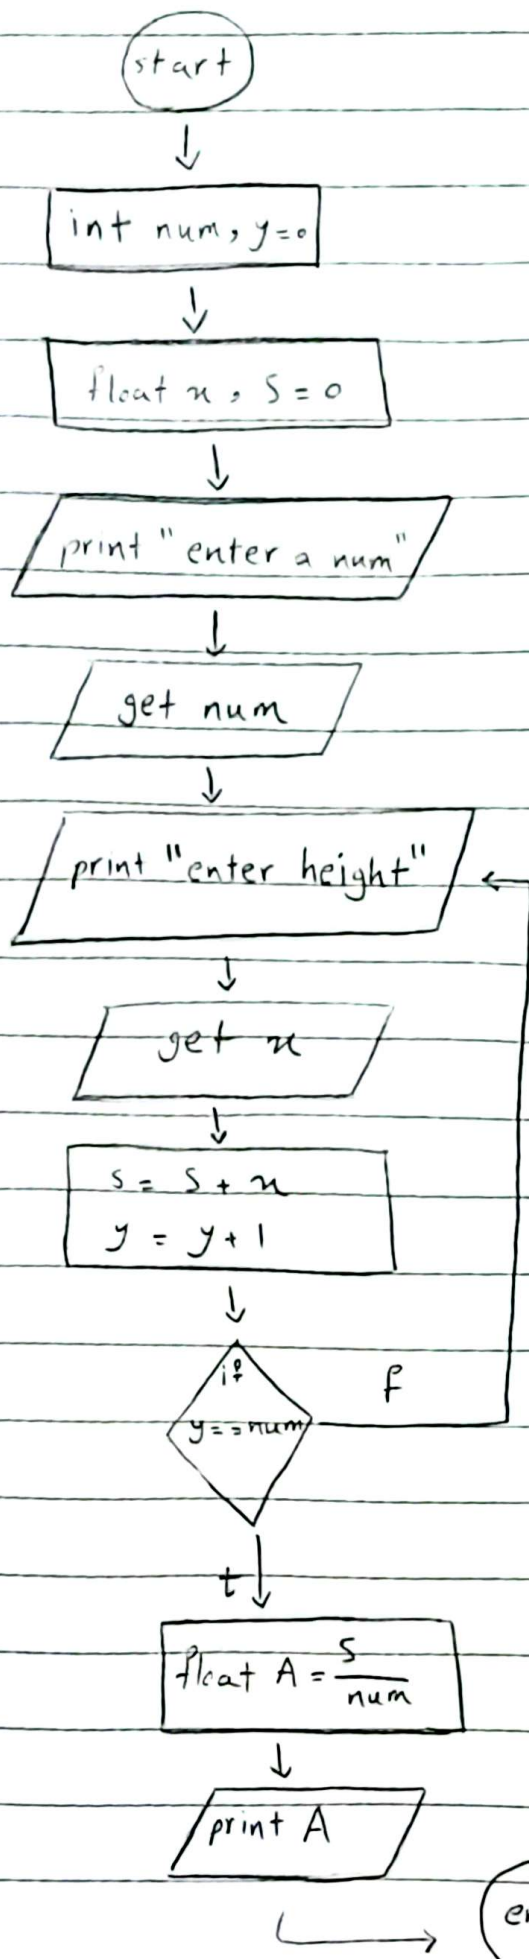 start
int num, y=0
float x, S = 0
print "enter a num"
get num
print "enter height"
get x
S = S + x
y = y + 1
if
y==num
f
t
float A = S
num
print A